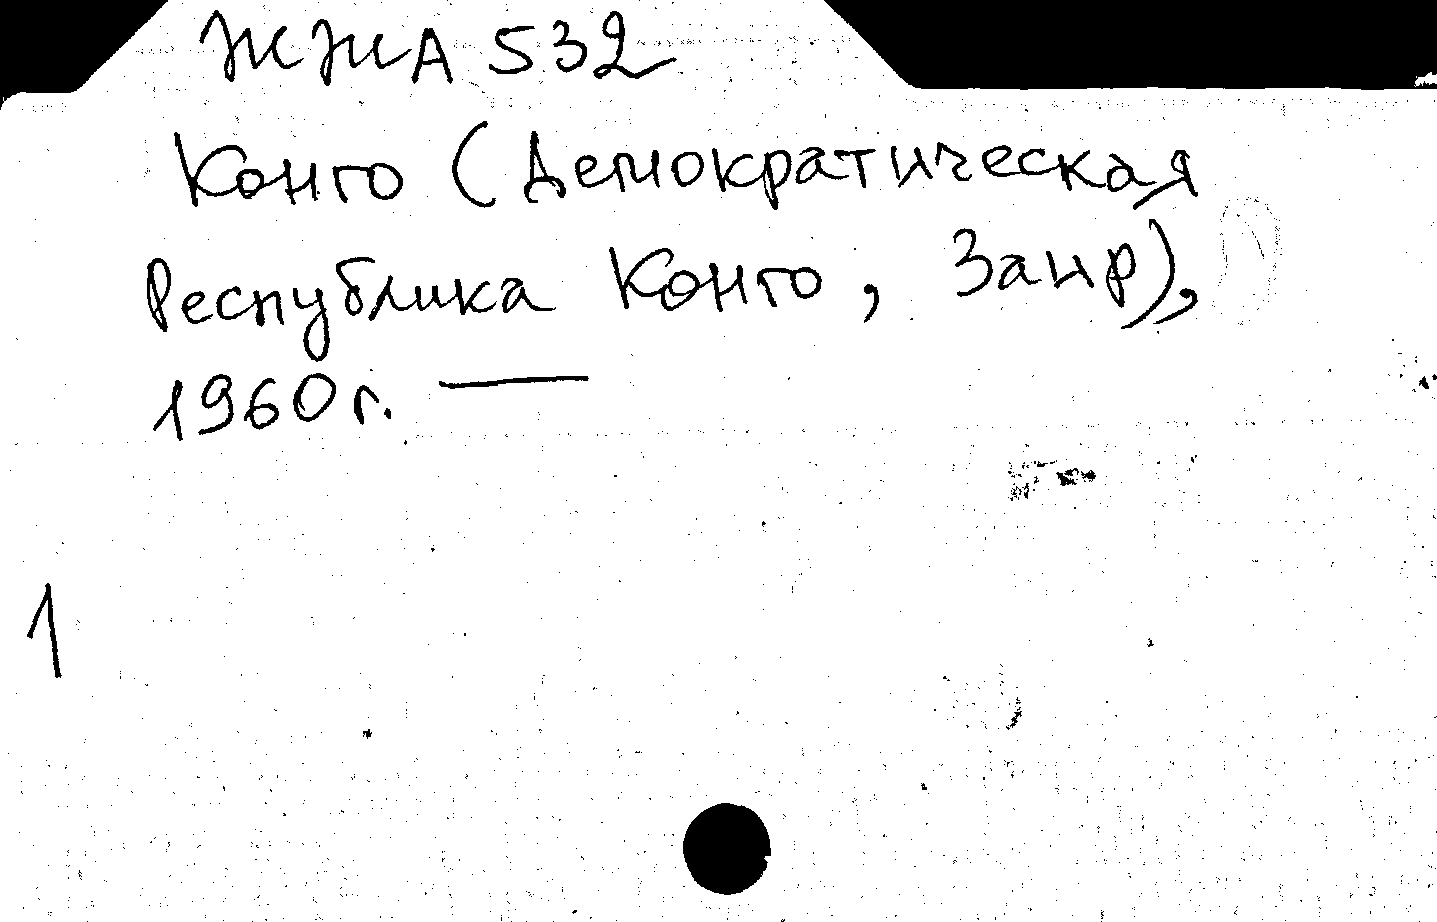 ЖЖА 532
Конго (Демократическая
Республика Конго, Заир),
1960 г. —
1